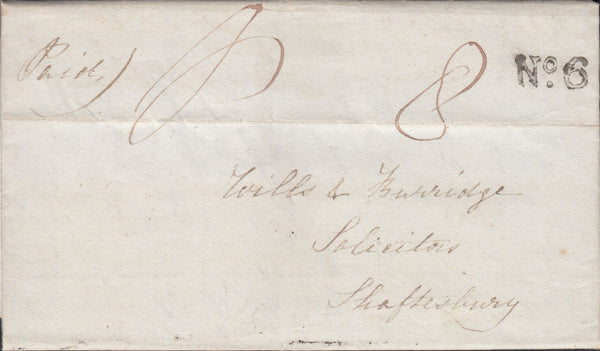 Paid 8 No. 6
Wills & Burridge
Solicitors
Shaftesbury